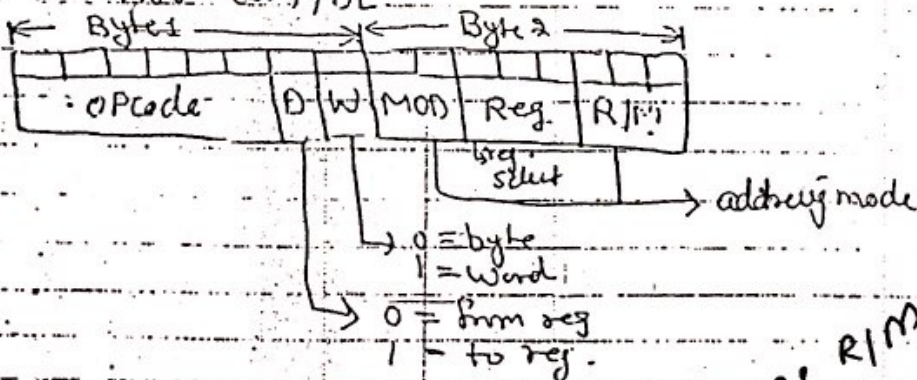 Byte 1 Byte 2
OPcode D W MOD Reg. R/M
reg. select
addressing mode
0 = byte
1 = word
0 = from reg
1 - to reg.
R/M